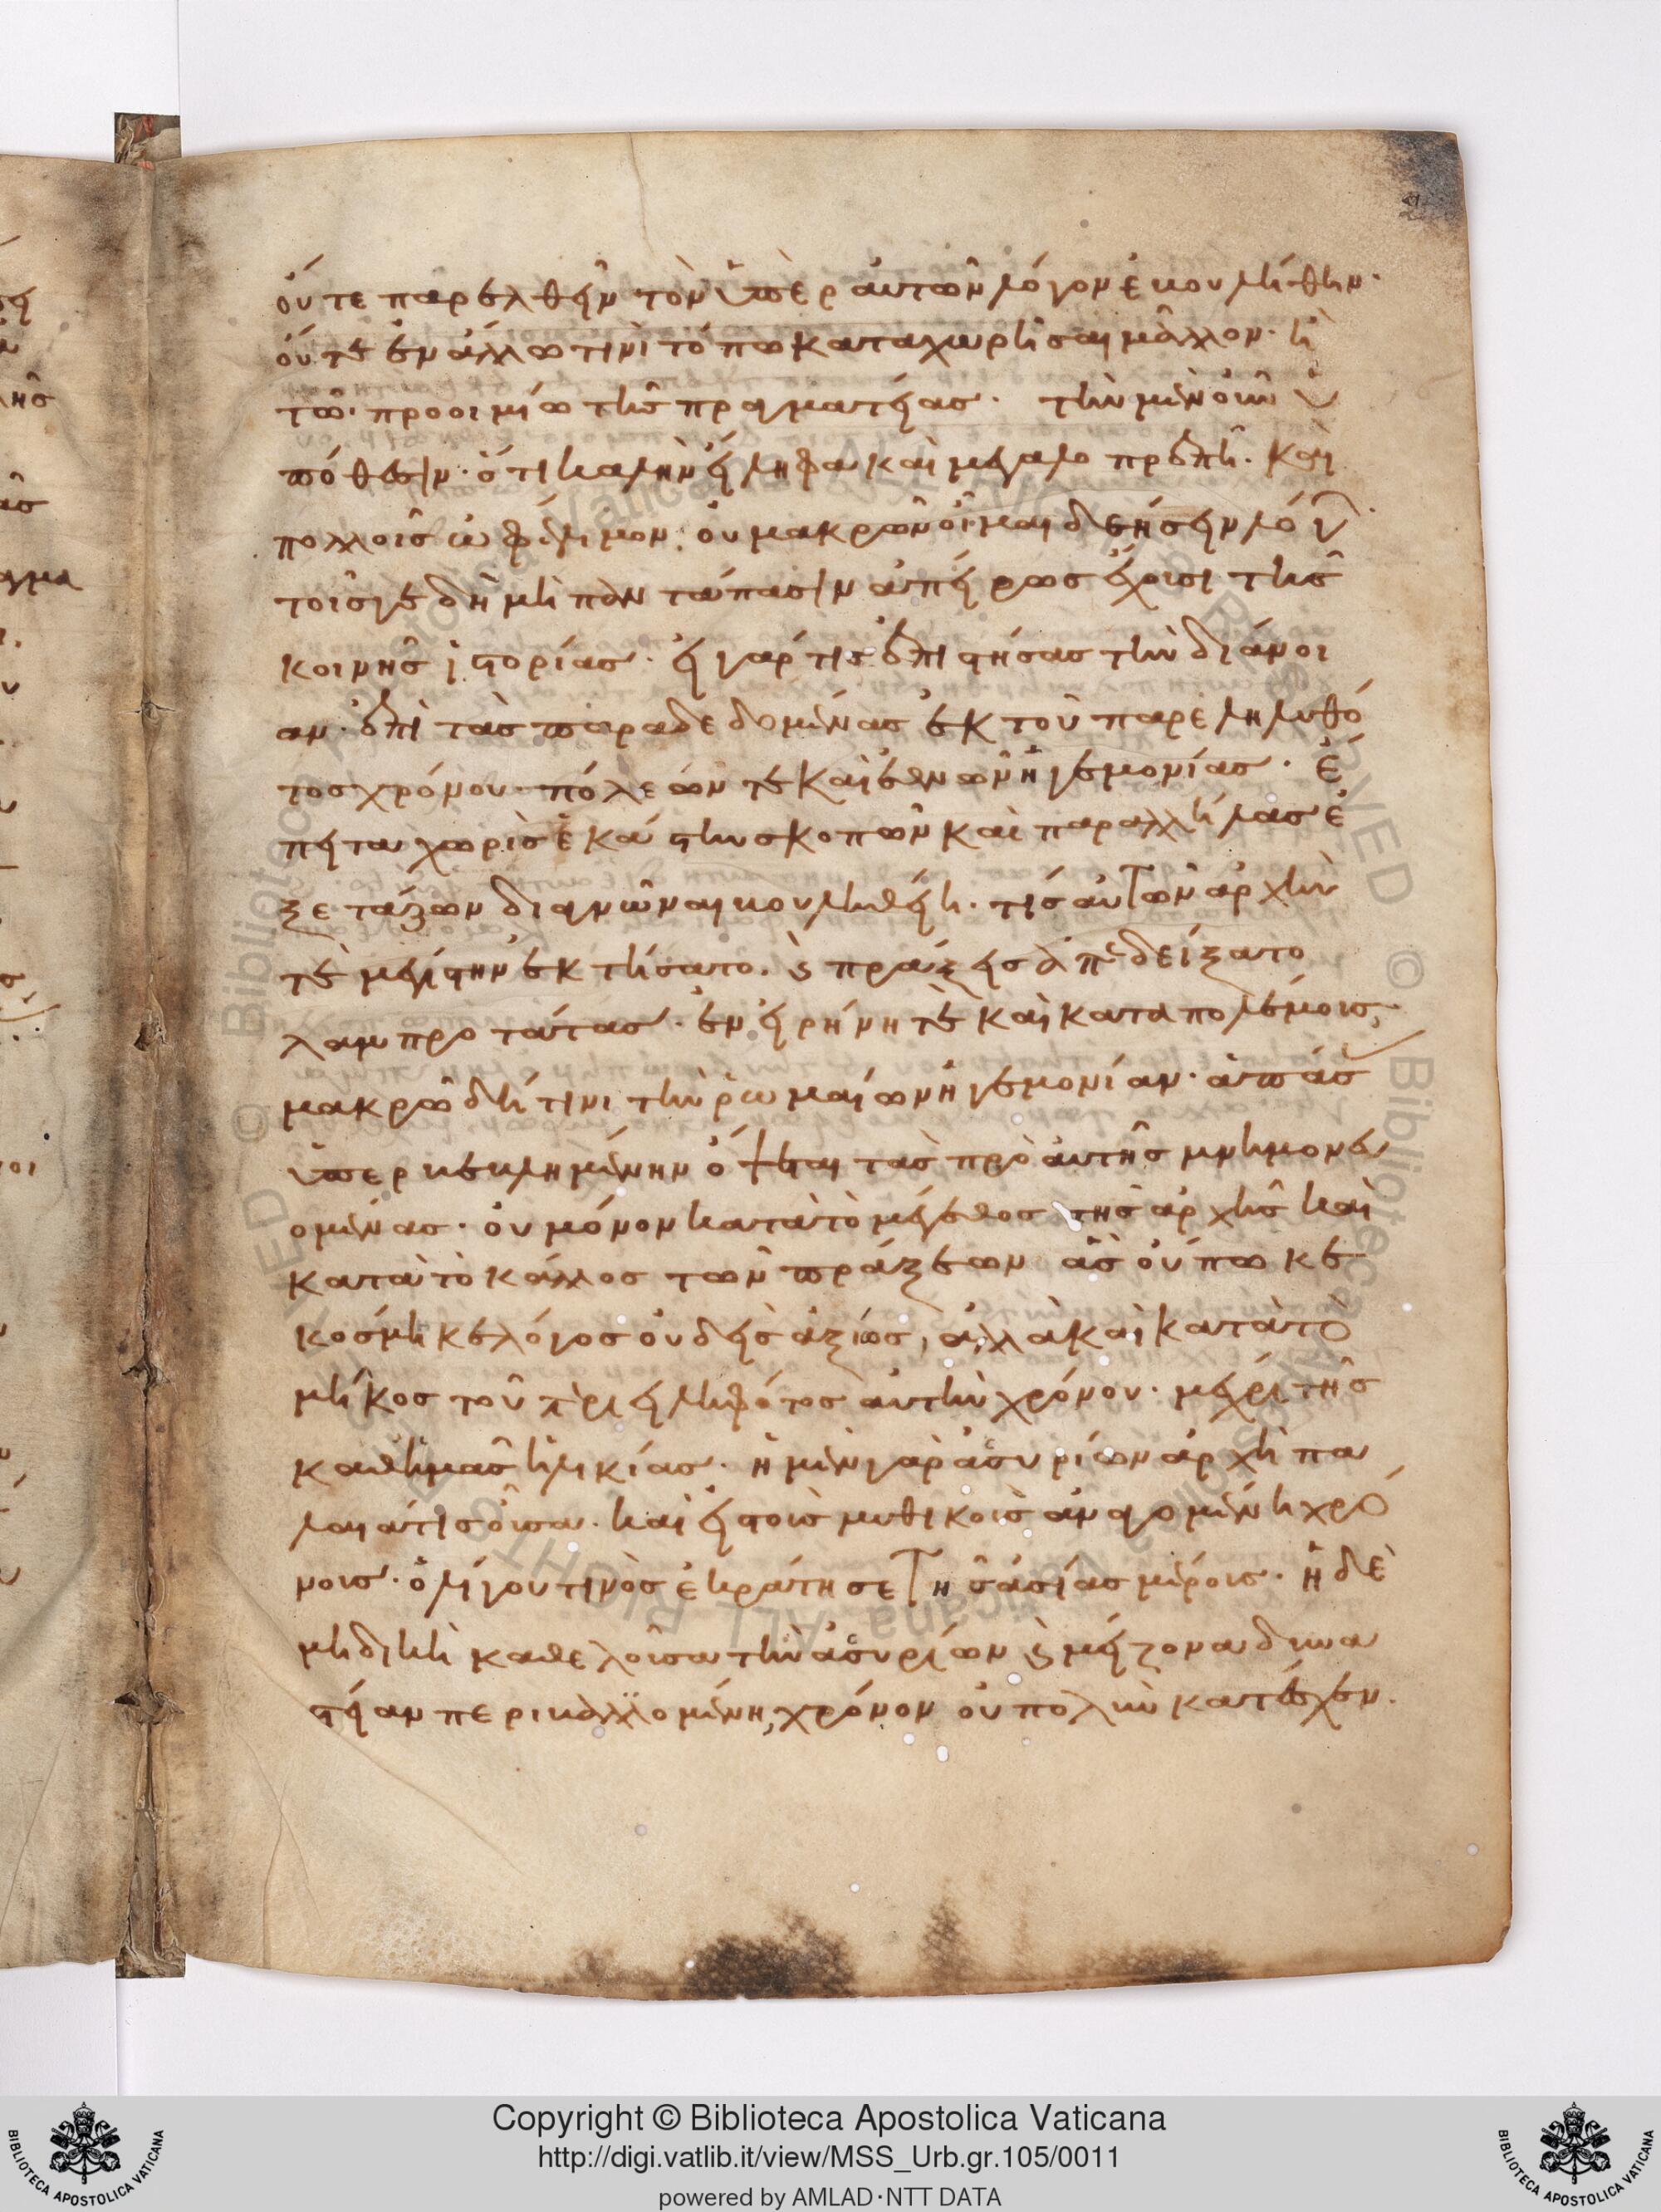 οὔτε παρελθεῖν τὸν ὑπὲρ αὐτῶν λόγον ἐβουλήθην·
οὔτε ἐν ἄλλω τινὶ τόπω καταχωρῆσαι μᾶλλον· ἢ
τῶ προοιμίω τῆς πραγματείας· τὴν μὲν οὖν ὑ
πόθεσιν· ὅτι καλὴν εἴληφα καὶ μεγαλοπρεπῆ· καὶ
πολλοῖς ὠφέλιμον· οὐ μακρῶν οἶμαι δεήσειν λόγ
τοῖς γε δὴ μὴ παντάπασιν ἀπείρως ἔχουσι τῆς
κοινῆς ἱστορίας· εἰ γάρ τις ἐπιστήσας τὴν διάνοι
αν· ἐπὶ τὰς παραδεδομένας ἐκ τοῦ παρεληλυθό
τος χρόνου πόλεών τε καὶ ἐθνῶν ἡγεμονίας· ἔ
πειτα χωρὶς ἑκάστην σκοπῶν καὶ παραλλήλας ἐ
ξετάζων διαγνῶναι βουληθείη· τίς αὐτῶν ἀρχήν
τε μεγίστην ἐκτήσατο· ϗ πράξεις ἀπεδείξατο
λαμπροτάτας· ἐν εἰρήνη τε καὶ κατὰ πολέμους·
μακρῶ δή τινι τὴν ῥωμαίων ἡγεμονίαν· ἁπάσ
ὑπερβεβλημένην ὄψεται τὰς πρὸ αὐτῆς μνημονευ
ομένας· οὐ μόνον κατὰ τὸ μέγεθος τῆς ἀρχῆς καὶ
κατὰ τὸ κάλλος τῶν πράξεων ἃς οὔπω κε
κόσμηκε λόγος οὐδεὶς ἀξίως, ἀλλὰ καὶ κατὰ τὸ
μῆκος τοῦ περιειληφότος αὐτὴν χρόνου· μέχρι τῆς
καθ' ἡμᾶς ἡλικίας· ἡ μὲν γὰρ ἀσσυρίων ἀρχὴ πα
λαιά τις οὖσα· καὶ εἰς τοὺς μυθικοὺς ἀναγομένη χρό
νους· ὀλίγου τινὸς ἐκράτησε τῆς ἀσίας μέρους· ἡ δὲ
μηδικὴ καθελοῦσα τὴν ἀσσυρίων ϗ μείζονα δυνα
στείαν περιβαλλομένη, χρόνον οὐ πολὺν κατέσχεν.
Copyright © Biblioteca Apostolica Vaticana
http://digi.vatlib.it/view/MSS_Urb.gr.105/0011
powered by AMLAD·NTT DATA
BIBLIOTECA APOSTOLICA VATICANA
BIBLIOTECA APOSTOLICA VATICANA